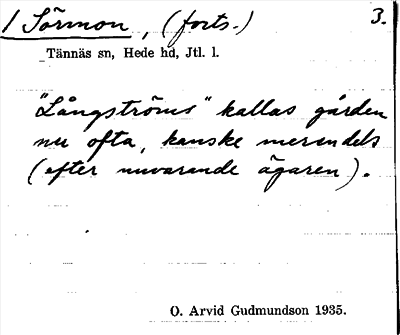 1 Sörmon, (forts.) 3.
Tännäs sn, Hede hd, Jtl. l.
"Långströms" kallas gården
nu ofta, kanske merendels
(efter nuvarande ägaren).
O. Arvid Gudmundson 1935.